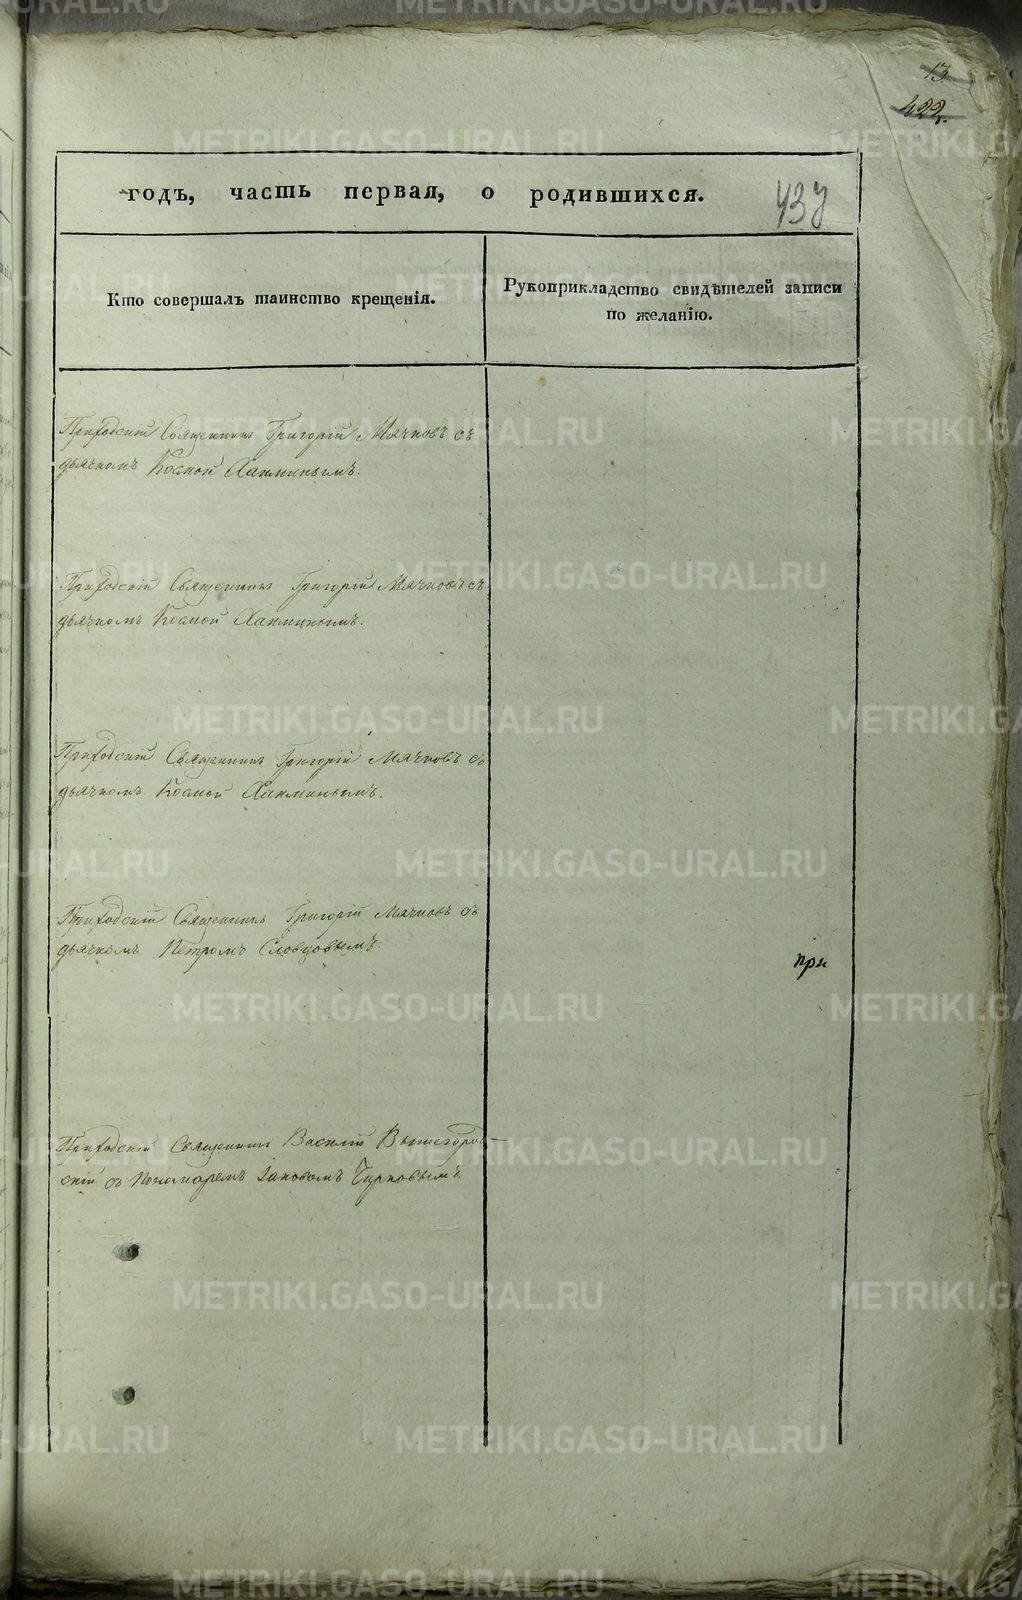 13.
422.
годъ, часть первая, о родившихся.
437
Кто совершалъ таинство крещенія.
Рукоприкладство свидѣтелей записи
по желанію.
Приходскій Священникъ Григорій Мячковъ съ
дьячкомъ Космой Хахминымъ.
Приходскій Священникъ Григорій Мячковъ съ
дьячкомъ Космой Хахминымъ.
Приходскій Священникъ Григорій Мячковъ съ
дьячкомъ Космой Хахминымъ.
Приходскій Священникъ Григорій Мячковъ съ
дьячкомъ Петромъ Словцовымъ.
при
Приходскій Священникъ Василій Вышегород-
скій съ Пономаремъ Іаковомъ Чирковымъ.
METRIKI.GASO-URAL.RU